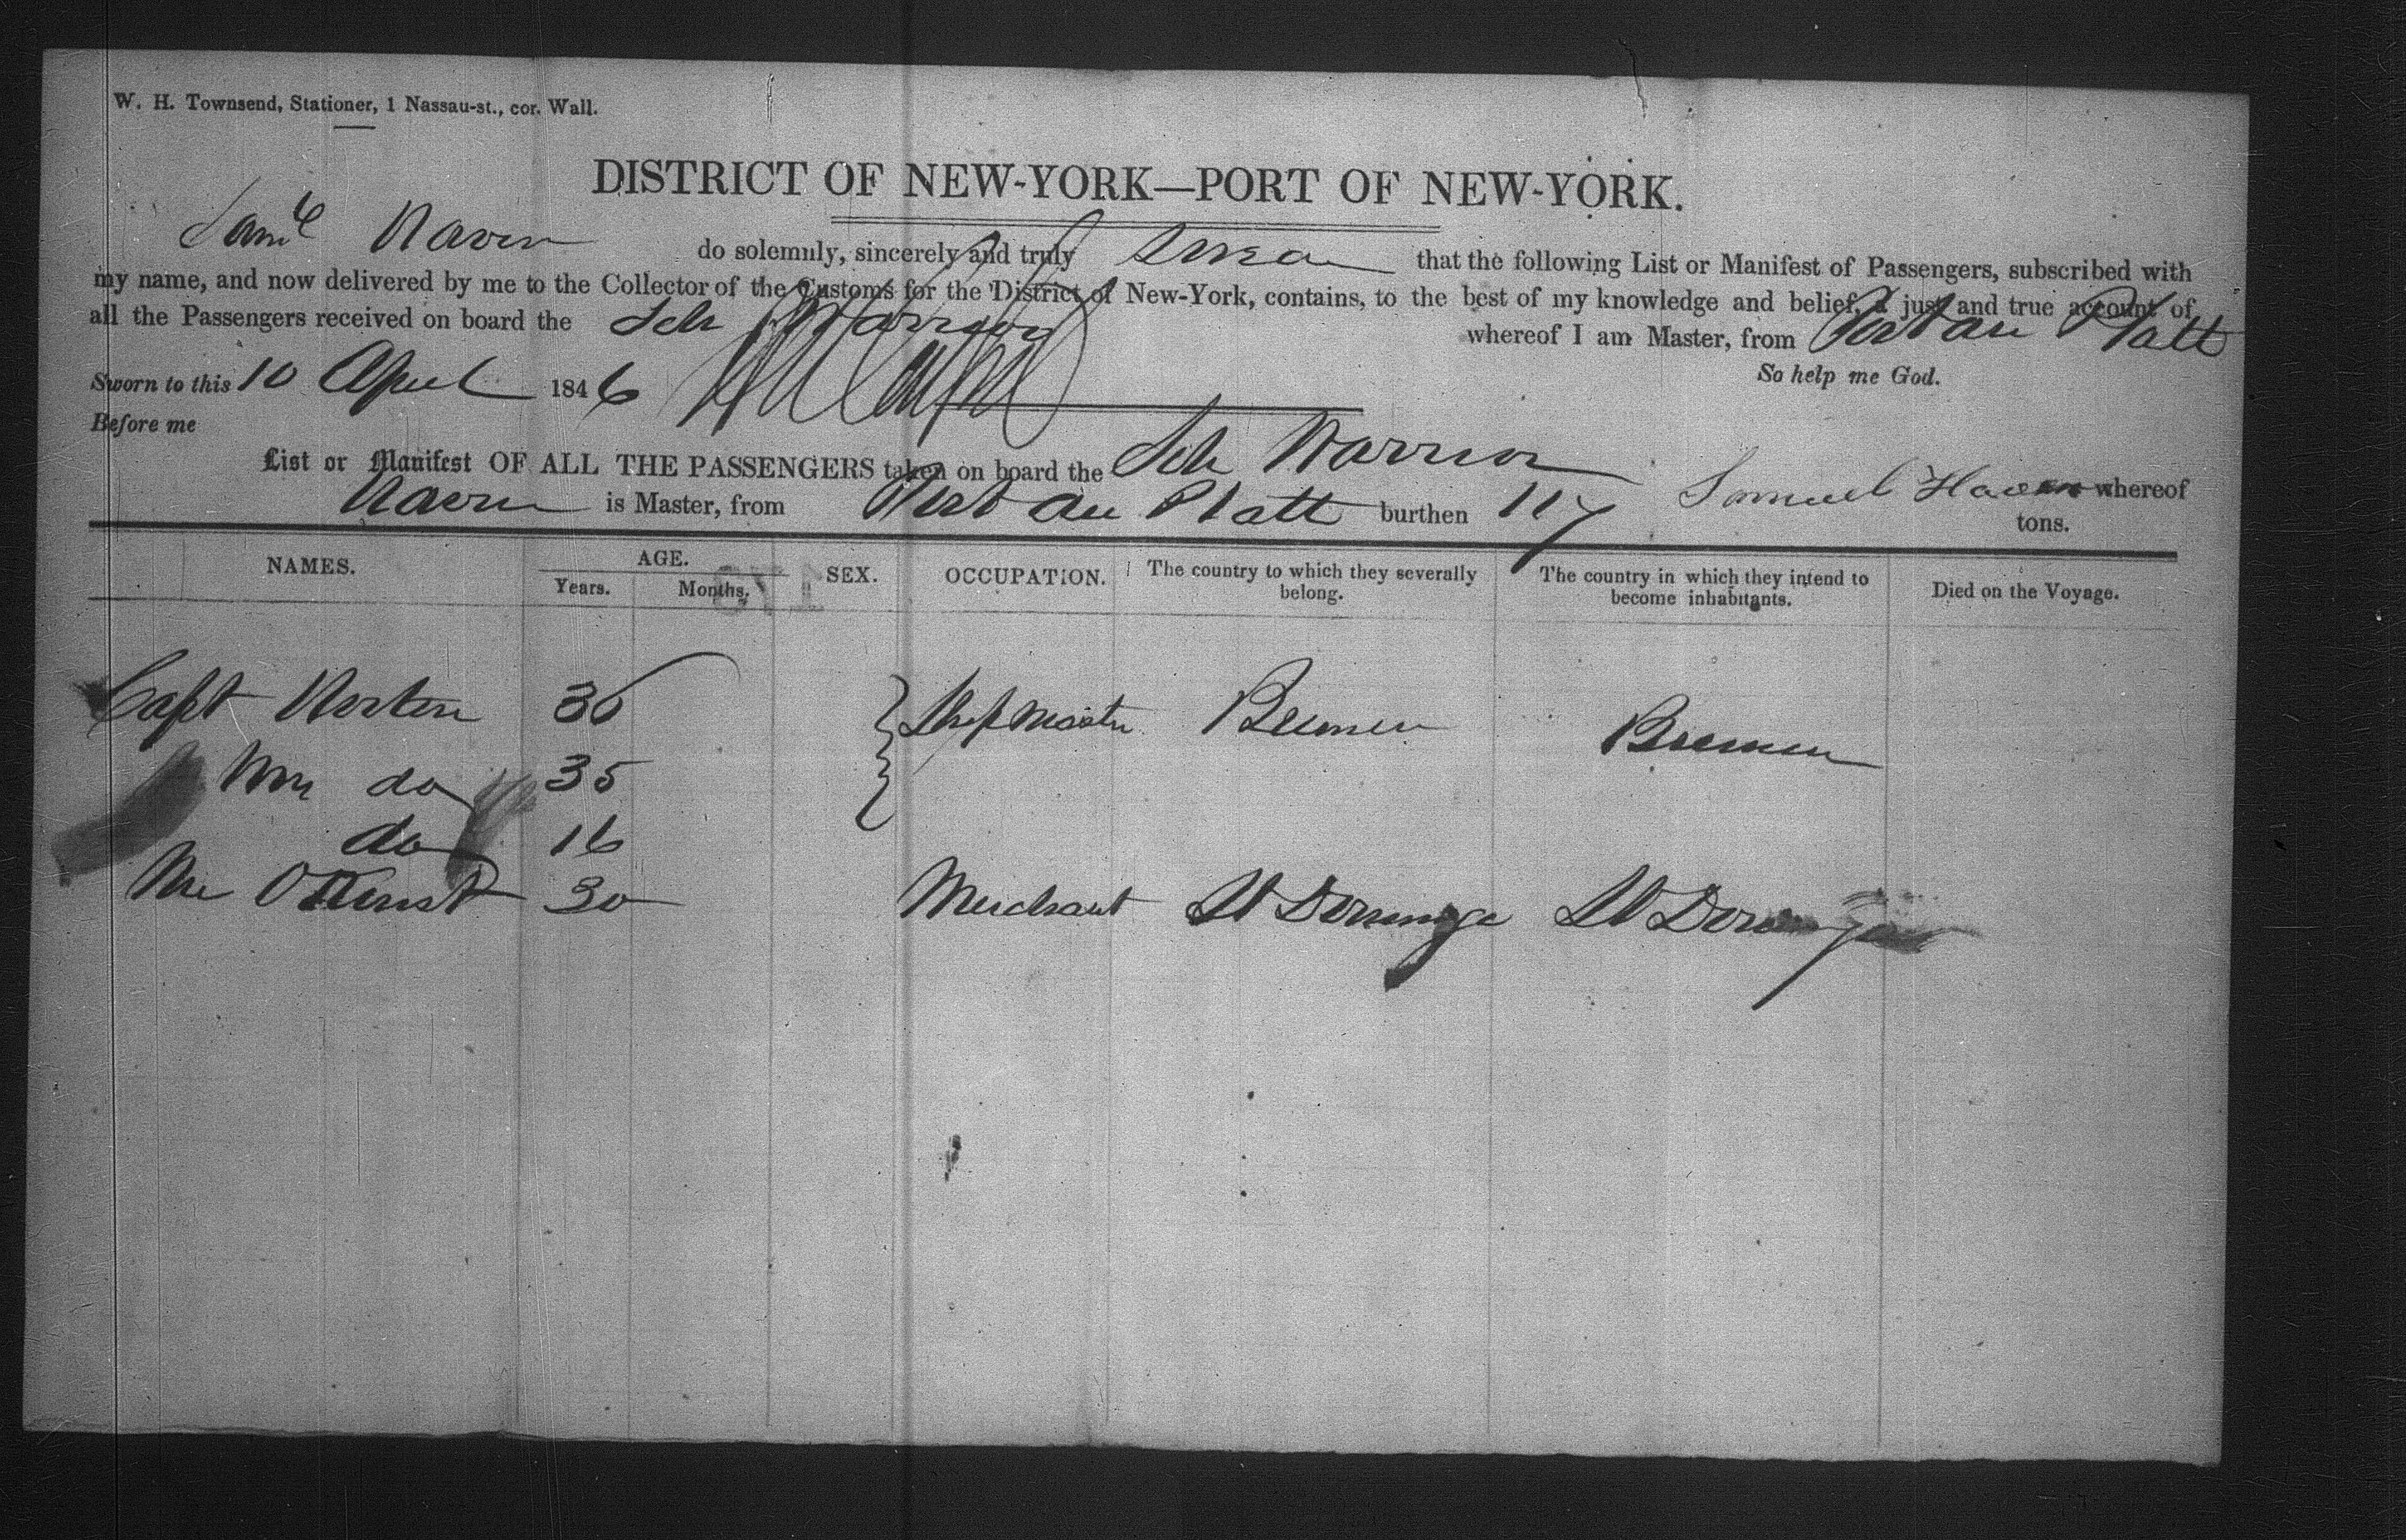 W. H. Townsend, Stationer, 1 Nassau-st., cor. Wall.
DISTRICT OF NEW-YORK—PORT OF NEW-YORK.
Saml Haven do solemnly, sincerely and truly swear that the following List or Manifest of Passengers, subscribed with
my name, and now delivered by me to the Collector of the Customs for the District of New-York, contains, to the best of my knowledge and belief, a just and true account of
all the Passengers received on board the Sch Warrior whereof I am Master, from Port au Platt
Sworn to this 10 April 1846 So help me God.
Before me
List or Manifest OF ALL THE PASSENGERS taken on board the Sch Warrior Samuel Haven whereof
Haven is Master, from Port au Platt burthen 117 tons.
NAMES. AGE. Years. Months. SEX. OCCUPATION. The country to which they severally belong. The country in which they intend to become inhabitants. Died on the Voyage.
Capt 36 Ship Master Bremen Bremen
do 35
do 16
Mr 30 Merchant St Domingo St Domingo